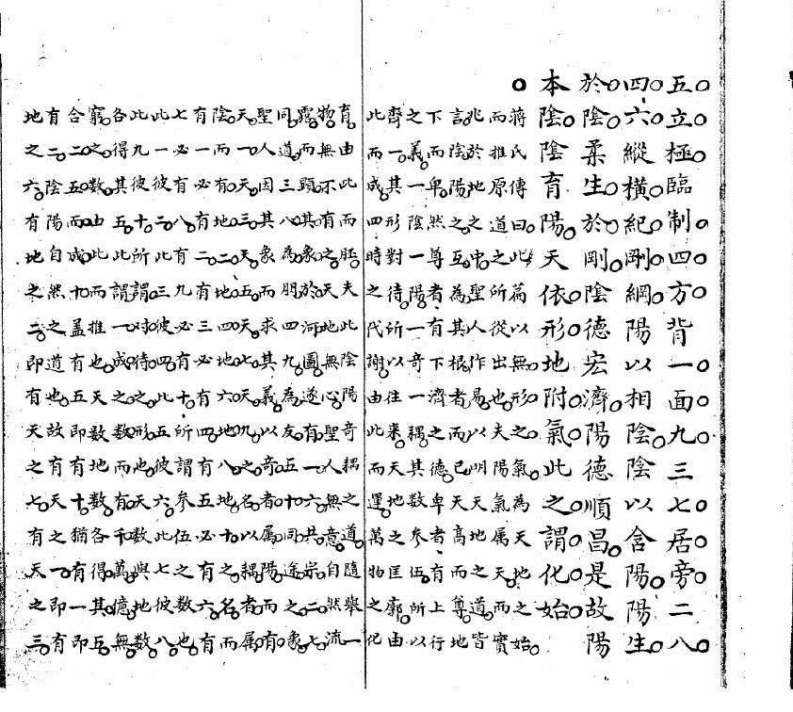 五立極臨制四方背一面九三七居旁二八
四六縱橫紀剛綱陽以相陰陰以含陽陽生
於陰柔生於剛陰德宏濟陽德順昌是故陽
本陰陰育陽天依形地附氣此之謂化始
蔣氏傳曰此篇以無形之氣為天地之始
而推原道之所從出也夫陽氣屬天而實
兆於地之中聖人作易以明天地之道皆
言陰陽之互為其根者而已天高而尊地
下而卑然尊者有下濟之德卑者有上行
之義一陰一陽一奇一耦其數參伍所以
齊一其形對待所以往來天地之匡廓由
此而成四時之代謝由此而運萬物之化
育由此而胚夫此陰陽奇耦之道隨舉一
物無不有之天地無心聖人無意自然流
露而顯其象於河圖遂有一六共宗二七
同道三八為朋四九為友五十同途之象
聖人因其象而求其義以奇者屬陽而有
天一天三天五天七天九之名以耦者屬
陰而有地二地四地六地八地十之名而
有一必有二有三必有四有五必有六有
七必有八有九必有十所謂參伍之數也
此一彼二此三彼四此五彼六此七彼八
此九彼十所謂對待之形也天數與地數
各得其五此謂一成之數而有千萬億無
窮之數由此而推也天數地數各得其五
合二五而成十蓋有五即有十猶有一即
有二陰陽自然之道也故有天之一即有
地之六有地之二即有天之七有天之三